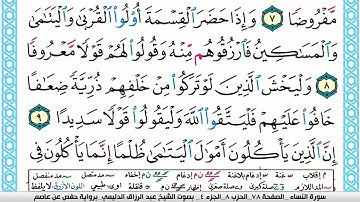 مَّفْرُوضًا ٧ وَإِذَا حَضَرَ ٱلْقِسْمَةَ أُو۟لُوا۟ ٱلْقُرْبَىٰ وَٱلْيَتَـٰمَىٰ
وَٱلْمَسَـٰكِينُ فَٱرْزُقُوهُم مِّنْهُ وَقُولُوا۟ لَهُمْ قَوْلًا مَّعْرُوفًا
٨ وَلْيَخْشَ ٱلَّذِينَ لَوْ تَرَكُوا۟ مِنْ خَلْفِهِمْ ذُرِّيَّةً ضِعَـٰفًا
خَافُوا۟ عَلَيْهِمْ فَلْيَتَّقُوا۟ ٱللَّهَ وَلْيَقُولُوا۟ قَوْلًا سَدِيدًا ٩
إِنَّ ٱلَّذِينَ يَأْكُلُونَ أَمْوَٰلَ ٱلْيَتَـٰمَىٰ ظُلْمًا إِنَّمَا يَأْكُلُونَ فِى
سورة النساء الصفحة ٧٨ الحزب ٨ الجزء ٤ بصوت الشيخ عبد الرزاق الدليمي برواية حفص عن عاصم